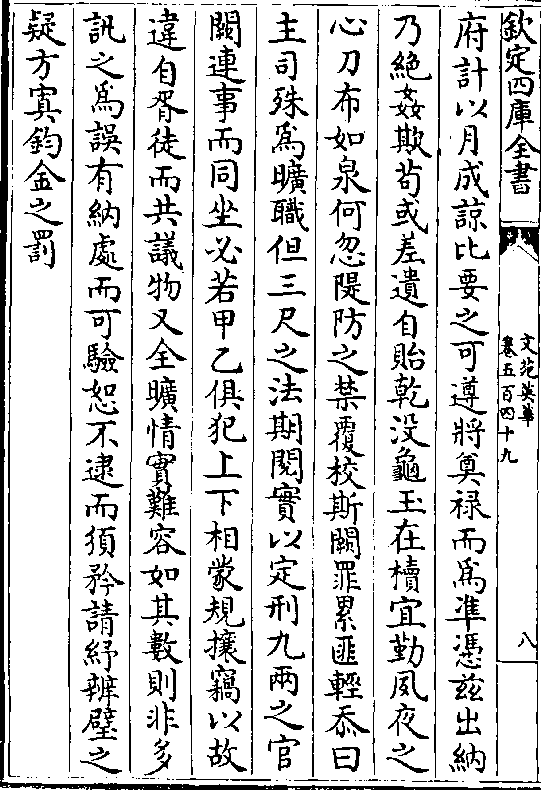 欽定四庫全書
文苑英華
卷五百四十九
八
府計以月成諒比要之可遵將奠禄而為準憑兹出納
乃絶姦欺茍或差遺自貽乾没龜玉在櫝宜勤夙夜之
心刀布如泉何忽隄防之禁覆校斯闕罪累匪輕忝曰
主司殊為曠職但三尺之法期閱實以定刑九兩之官
闕連事而同坐必若甲乙俱犯上下相蒙規攘竊以故
違自胥徒而共議物又全曠情實難容如其數則非多
訊之為誤有納處而可驗恕不逮而須矜請紓辨璧之
疑方寘鈞金之罰